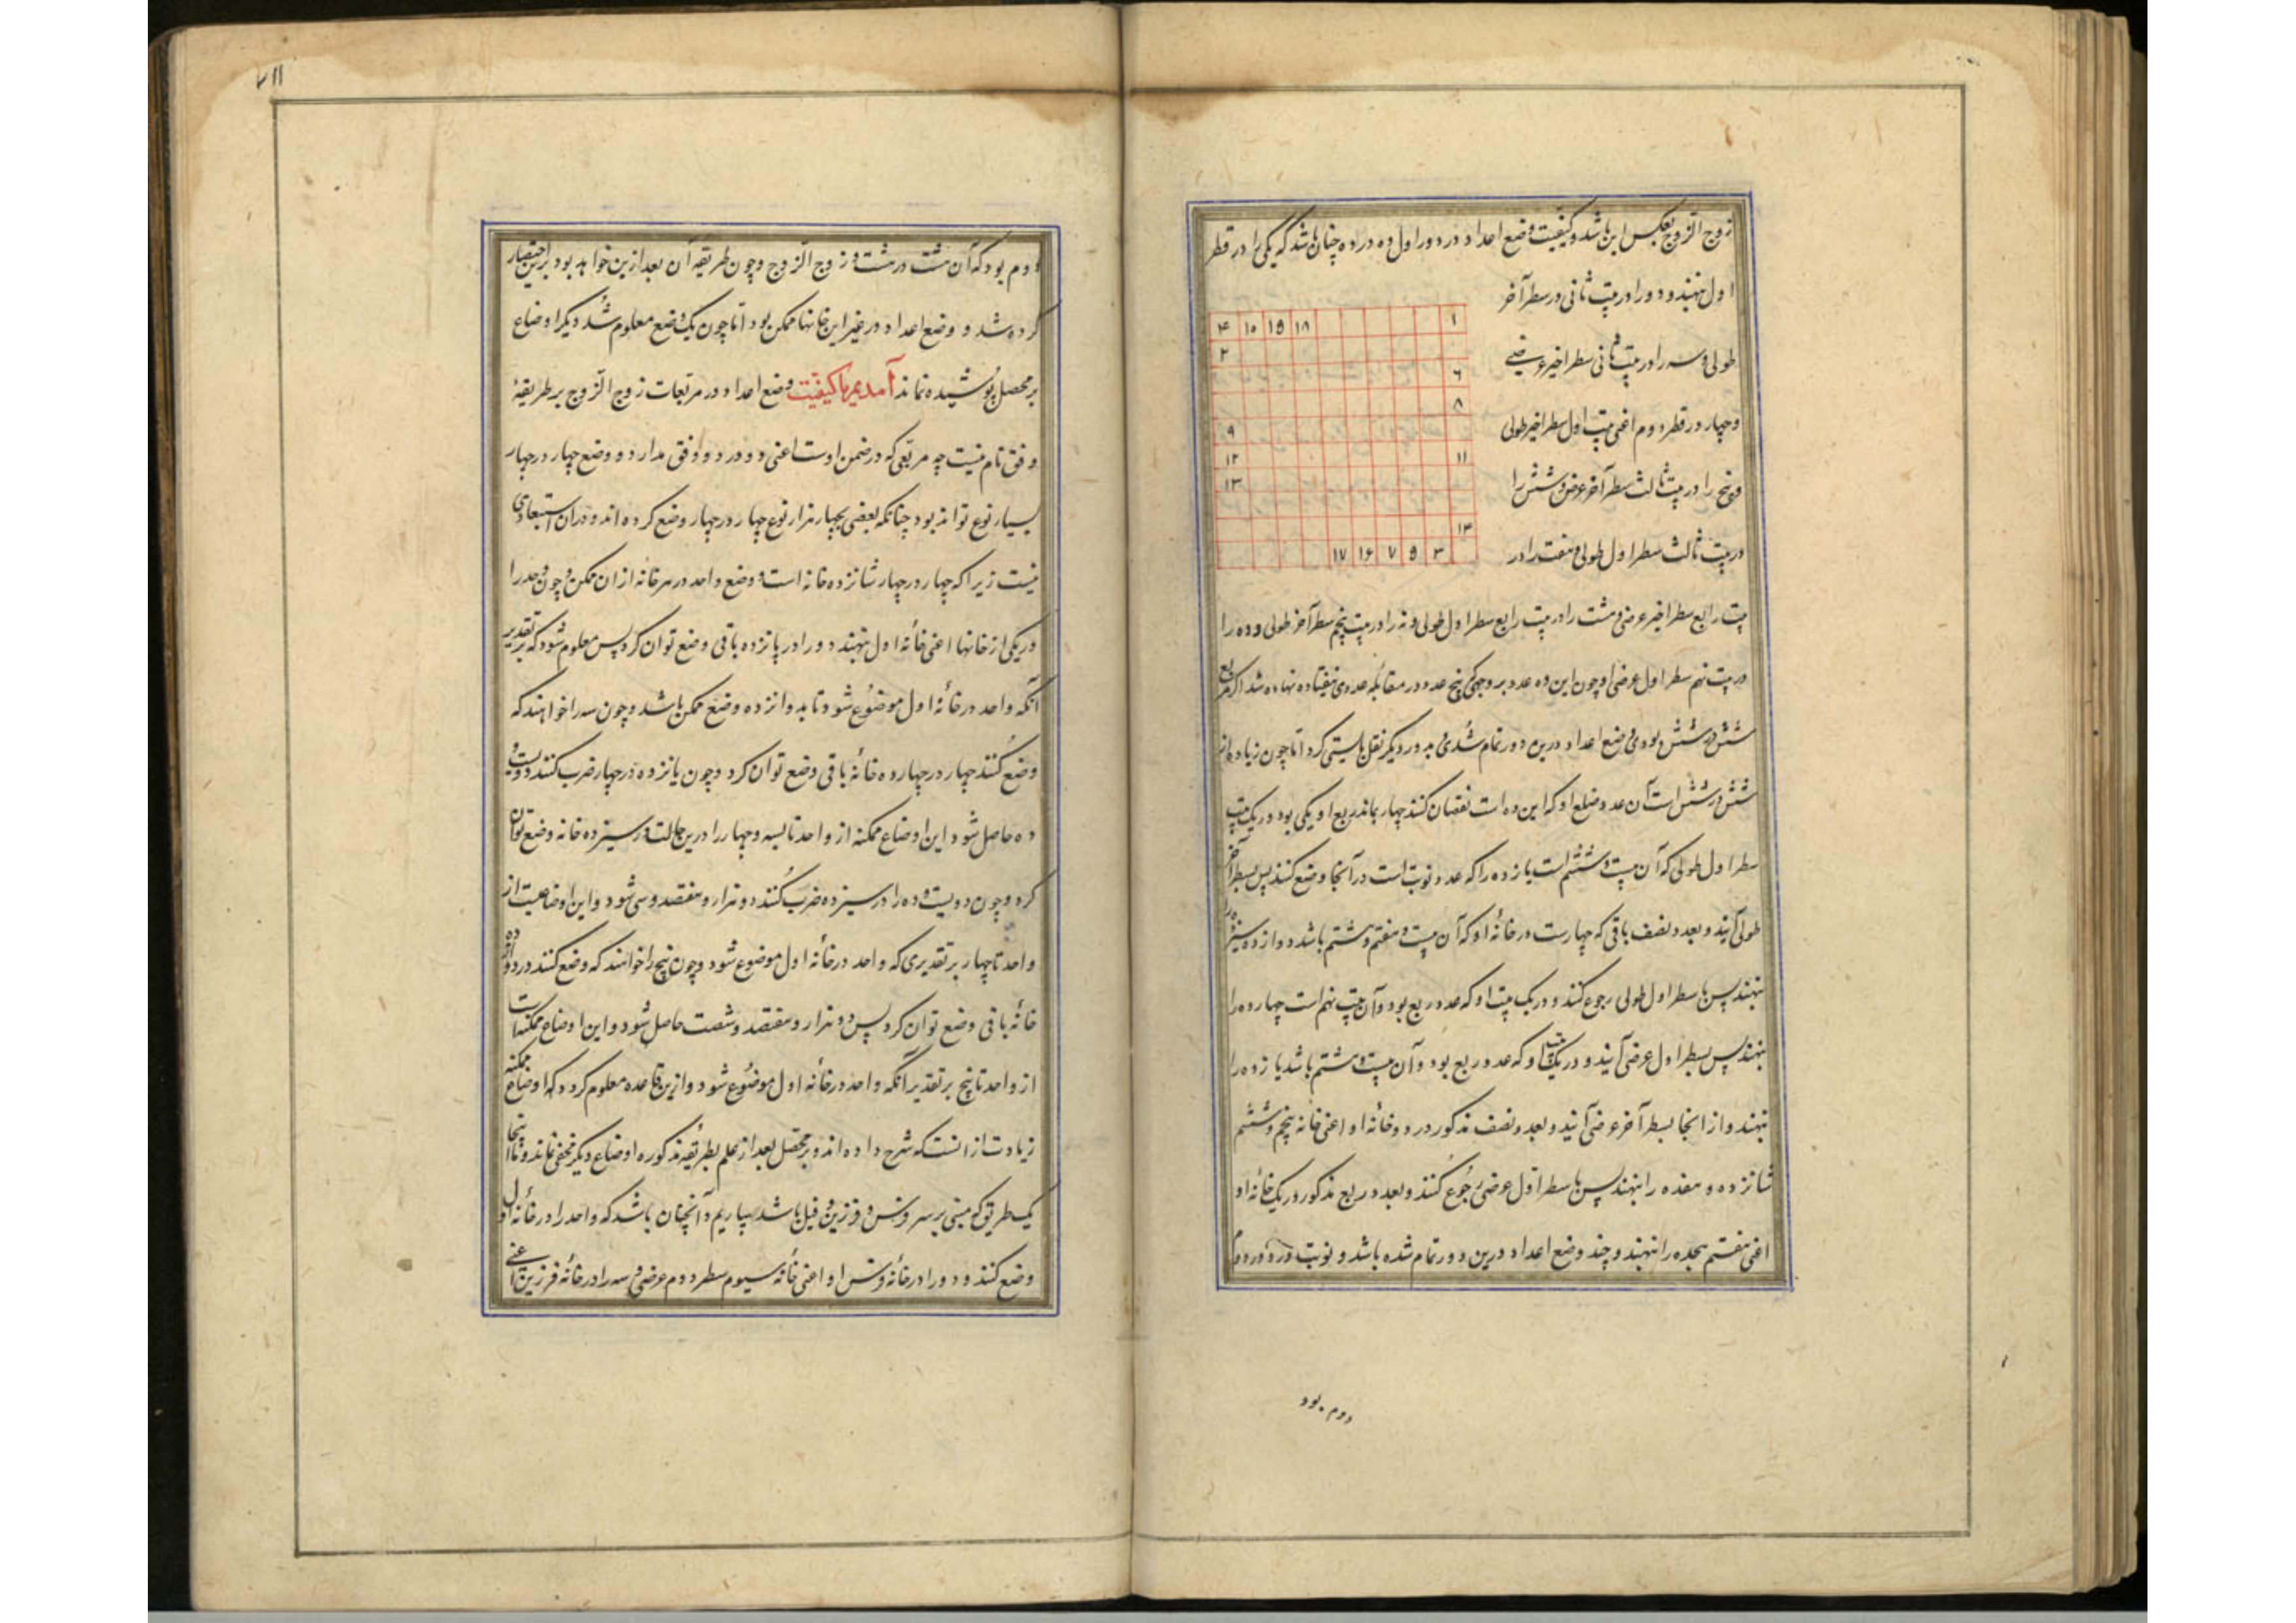 زوج الزوج بعکس این باشد و کیفیت وضع اعداد در دور اول ده در ده چنان باشد که یکی را در قطر
اول نهند و دو را در بیت ثانی در سطر آخر
طولی و سه را در بیت ثانی سطر اخیر عرضی
و چهار در قطر دوم اعنی بیت اول سطر اخیر طولی
و پنج را در بیت ثالث سطر آخر عرضی و شش را
در بیت ثالث سطر اول طولی و هفت را در
۴ ۱۰ ۱۵ ۱۸ ۱
۲
۶
۸
۹
۱۲ ۱۱
۱۳
۱۴
۱۷ ۱۶ ۷ ۵ ۳
بیت رابع سطر اخیر عرضی و هشت را در بیت رابع سطر اول طولی و نه را در بیت پنجم سطر آخر طولی و ده را
در بیت نهم سطر اول عرضی و چون این ده عدد بر وجهی که هیچ عدد در مقابله عددی نیفتاده نهاده شد اگر مربع
شش در شش بودی وضع اعداد درین دور تمام شدی و بدور دیگر نقل بایستی کرد اما چون زیاده از
شش در شش است آن عدد ضلع او که این ده است نقصان کنند چهار بماند ربع او یکی بود در یک بیت
سطر اول طولی که آن بیت ششم است یازده را که عدد نوبت است در آنجا وضع کنند پس بسطر آخر
طولی آیند و بعدد نصف باقی که چهارست در خانهٔ او که آن بیت هفتم و هشتم باشد دوازده و سیزده را
نهند پس با سطر اول طولی رجوع کنند و در یک بیت او که عدد ربع بود و آن بیت نهم است چهارده را
بنهند پس بسطر اول عرضی آیند و در یک بیت او که عدد ربع بود و آن بیت هشتم باشد یازده را
نهند و از انجا بسطر آخر عرضی آیند و بعدد نصف مذکور در دو خانهٔ او اعنی خانه پنجم و ششم
شانزده و هفده را بنهند پس با سطر اول عرضی رجوع کنند و بعدد ربع مذکور در یک خانهٔ او
اعنی هفتم هجده را بنهند و چند وضع اعداد درین دور تمام شده باشد و نوبت در دور دوم
دوم بود
دوم بود که آن هشت در هشت و زوج الزوج و چون طریقه آن بعد ازین خواهد بود برین اختصار
کرده شد و وضع اعداد در غیر این خانها ممکن بود اما چون یک وضع معلوم شد دیگر اوضاع
بر محصل پوشیده نماند آمدیم با کیفیت وضع اعداد در مربعات زوج الزوج بر طریقهٔ
وفق تام نیست چه مربعی که در ضمن اوست اعنی دو در دو وفق ندارد و وضع چهار در چهار
بسیار نوع تواند بود چنانکه بعضی بچهار هزار نوع چهار در چهار وضع کرده اند و در ان استبعادی
نیست زیرا که چهار در چهار شانزده خانه است و وضع واحد در هر خانه از ان ممکن و چون واحد را
در یکی از خانها اعنی خانهٔ اول بنهند دو را در پانزده باقی وضع توان کرد پس معلوم شود که بر تقدیر
آنکه واحد در خانهٔ اول موضوع شود تا به دو پانزده وضع ممکن باشد و چون سه را خواهند که
وضع کنند چهار در چهار ده خانهٔ باقی وضع توان کرد و چون پانزده در چهار ضرب کنند دویست و
ده حاصل شود این اوضاع ممکنه از واحد تا بسه و چهار را درین حالت در سیزده خانه وضع توان
کرد و چون دویست و ده را در سیزده ضرب کنند دو هزار و هفتصد و سی شود و این اوضاعیست از
واحد تا چهار بر تقدیری که واحد در خانهٔ اول موضوع شود و چون پنج را خواهند که وضع کنند در دوازده
خانهٔ باقی وضع توان کرد پس دو هزار و هفتصد و شصت حاصل شود و این اوضاع ممکنه است
از واحد تا پنج بر تقدیر آنکه واحد در خانهٔ اول موضوع شود و ازین قاعده معلوم گردد که اوضاع ممکنه
زیادت از انست که شرح داده اند و بر محصل بعد از علم بطریقه مذکوره اوضاع دیگر مخفی نماند و ما اینجا
یک طریق که مبنی بر سر و فرس و فرزین و فیل باشد بیاریم و آنچنان باشد که واحد را در خانهٔ اول
وضع کنند و دو را در خانهٔ فرس او اعنی خانهٔ سیوم سطر دوم عرضی و سه را در خانهٔ فرزین اعنی